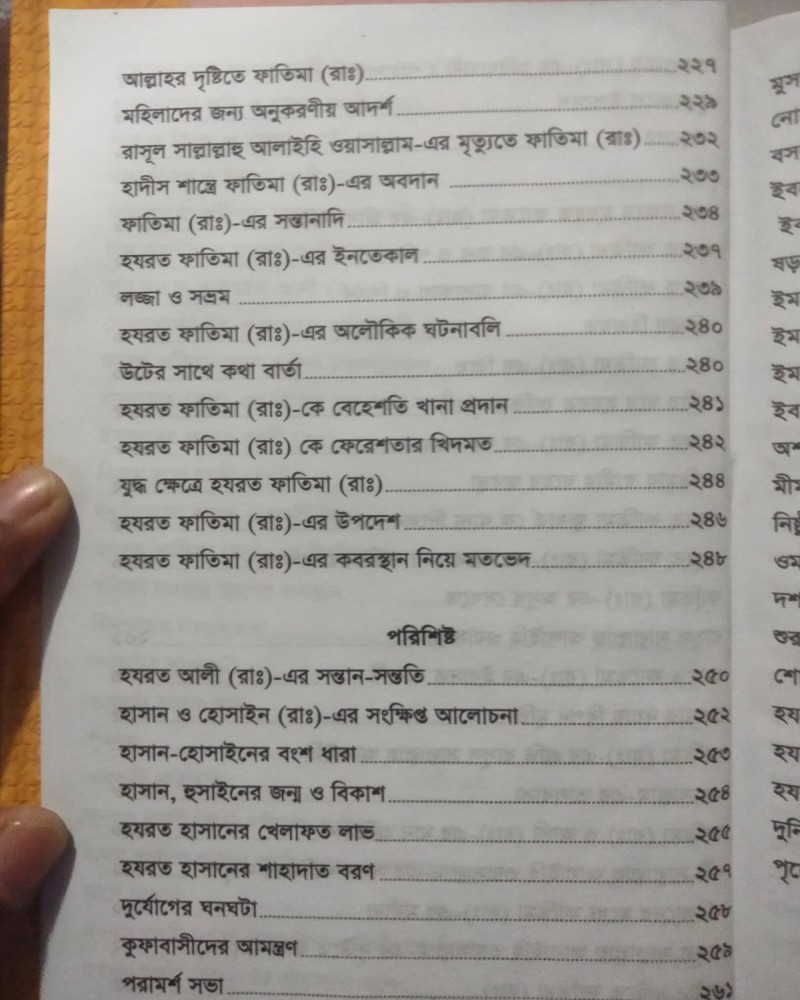 আল্লাহর দৃষ্টিতে ফাতিমা (রাঃ)....................২২৭
মহিলাদের জন্য অনুকরণীয় আদর্শ....................২২৯
রাসূল সাল্লাল্লাহু আলাইহি ওয়াসাল্লাম-এর মৃত্যুতে ফাতিমা (রাঃ)......২৩২
হাদীস শাস্ত্রে ফাতিমা (রাঃ)-এর অবদান ....................২৩৩
ফাতিমা (রাঃ)-এর সন্তানাদি....................২৩৪
হযরত ফাতিমা (রাঃ)-এর ইনতেকাল....................২৩৭
লজ্জা ও সম্ভ্রম ....................২৩৯
হযরত ফাতিমা (রাঃ)-এর অলৌকিক ঘটনাবলি ....................২৪০
উটের সাথে কথা বার্তা....................২৪০
হযরত ফাতিমা (রাঃ)-কে বেহেশতি খানা প্রদান....................২৪১
হযরত ফাতিমা (রাঃ) কে ফেরেশতার খিদমত....................২৪২
যুদ্ধ ক্ষেত্রে হযরত ফাতিমা (রাঃ)....................২৪৪
হযরত ফাতিমা (রাঃ)-এর উপদেশ....................২৪৬
হযরত ফাতিমা (রাঃ)-এর কবরস্থান নিয়ে মতভেদ....................২৪৮
পরিশিষ্ট
হযরত আলী (রাঃ)-এর সন্তান-সন্ততি....................২৫০
হাসান ও হোসাইন (রাঃ)-এর সংক্ষিপ্ত আলোচনা....................২৫২
হাসান-হোসাইনের বংশ ধারা....................২৫৩
হাসান, হুসাইনের জন্ম ও বিকাশ....................২৫৪
হযরত হাসানের খেলাফত লাভ....................২৫৫
হযরত হাসানের শাহাদাত বরণ....................২৫৭
দুর্যোগের ঘনঘটা....................২৫৮
কূফাবাসীদের আমন্ত্রণ....................২৫৯
পরামর্শ সভা....................২৬১